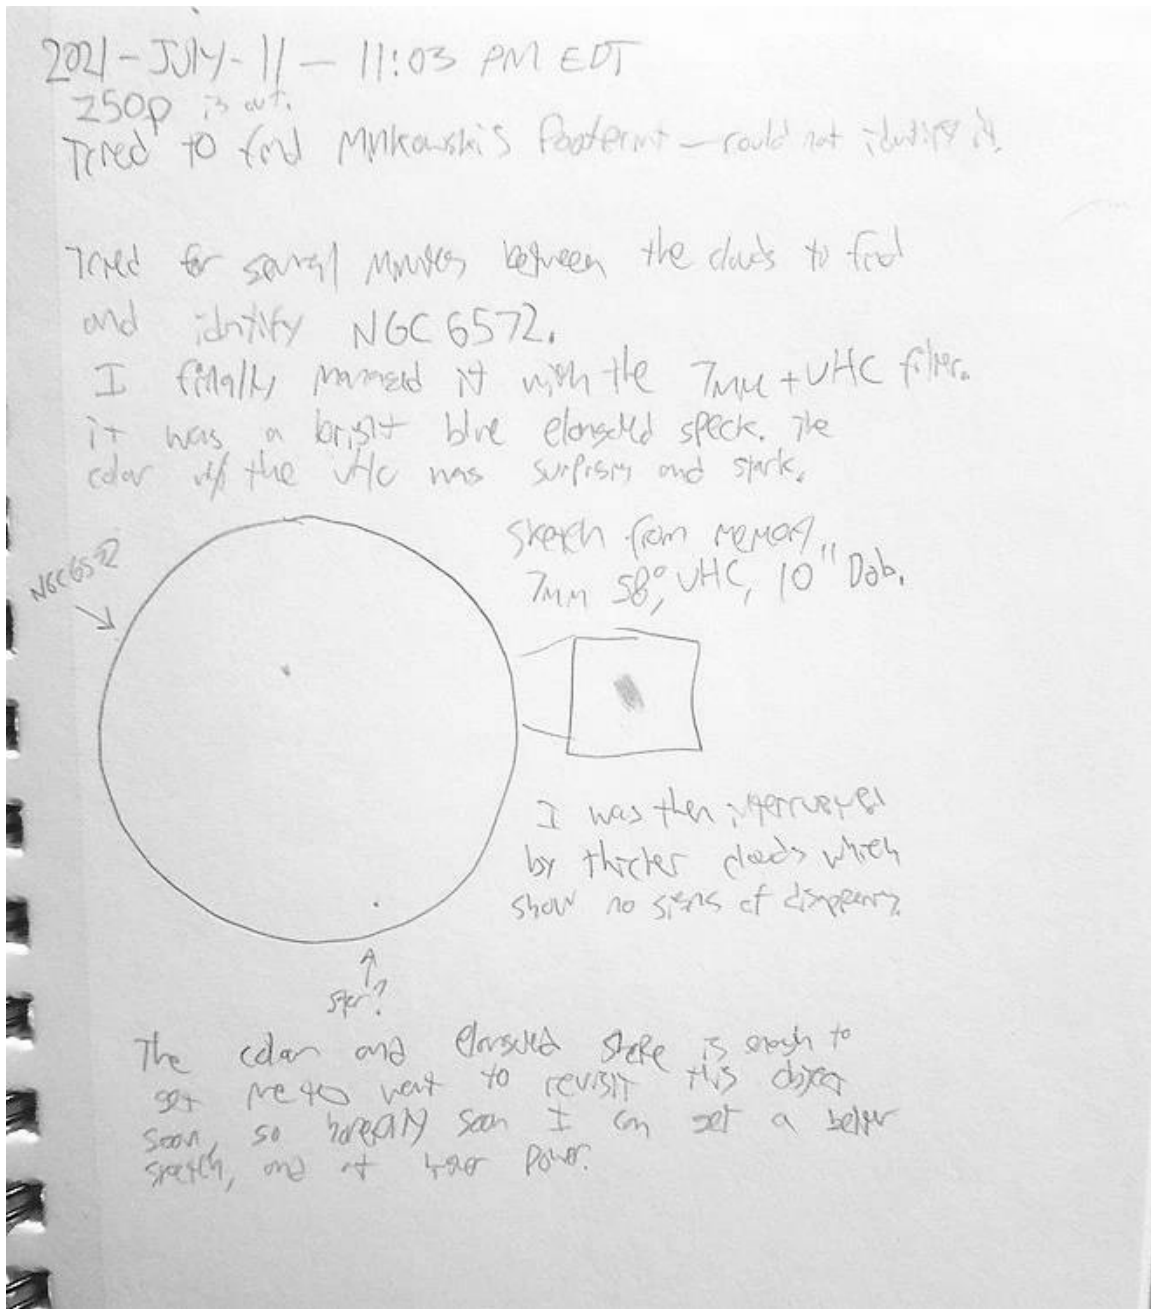 2021-JULY-11 — 11:03 PM EDT
250p is out.
Tried to find Minkowski's Footprint — could not identify it.
Tried for several minutes between the clouds to find
and identify NGC 6572.
I finally managed it with the 7mm + UHC filter.
it was a bright blue elongated speck. The
color w/ the UHC was surprising and stark.
NGC 6572
Sketch from memory
7mm 58°, UHC, 10" Dob.
I was then interrupted
by thicker clouds which
show no signs of disappearing.
star?
The color and elongated shape is enough to
get me to want to revisit this object
soon, so hopefully soon I can get a better
sketch, and at power.